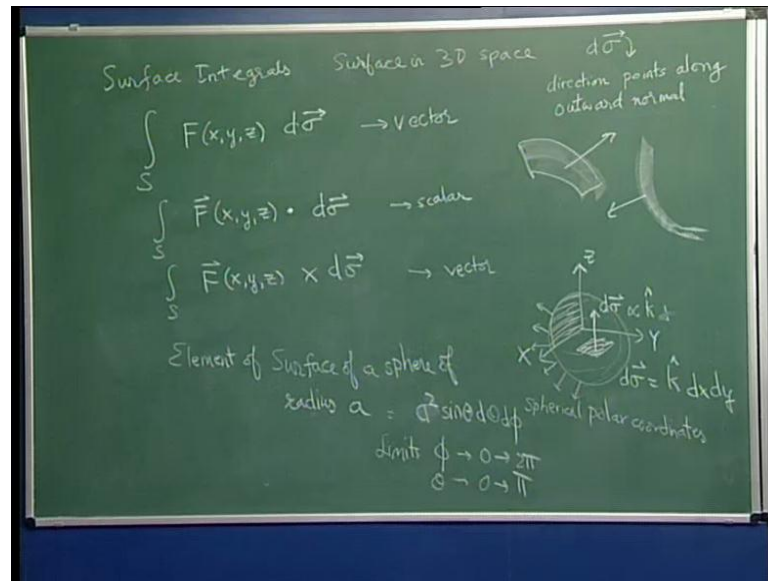 Surface Integrals Surface in 3D space
dσ⃗
direction points along
outward normal
∫_S F(x,y,z) dσ⃗ → vector
∫_S F⃗(x,y,z) • dσ⃗ → scalar
∫_S F⃗(x,y,z) × dσ⃗ → vector
Z
dσ⃗ ∝ k̂
X Y
dσ⃗ = k̂ dxdy
Element of Surface of a sphere of
radius a = a² sinθ dθ dϕ spherical polar coordinates
Limits ϕ → 0 → 2π
θ → 0 → π